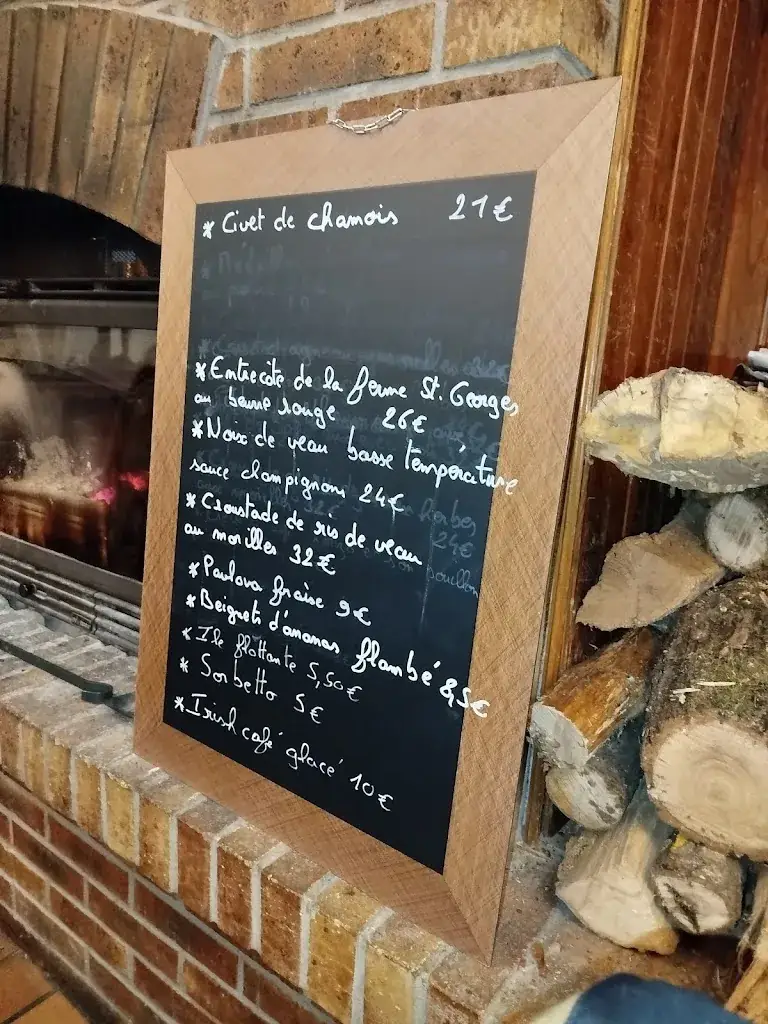 * Civet de chamois 21€
* Entrecôte de la ferme St. Georges
au beurre rouge 26€
* Noix de veau basse température
sauce champignons 24€
* Croustade de ris de veau
au morilles 32€
* Paulova fraise 9€
* Beignets d'ananas flambé 8,5€
* Ile flottante 5,50€
* Sorbetto 5€
* Irish café glacé 10€